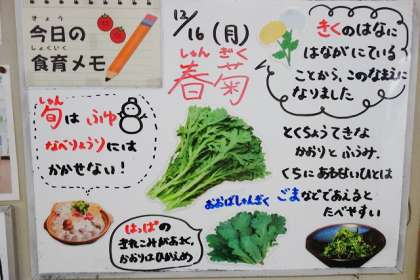 きょう
今日の
しょくいく
食育メモ
12/16(月)
しゅん ぎく
春菊
きくのはなに
はながにている
ことから、このなまえに
なりました
しゅん
旬はふゆ
なべりょうりには
かかせない!
とくちょうてきな
かおりとふうみ、
くちにあわないひとは
ごまなどであえると
たべやすい
おおばしゅんぎく
はっぱの
きれこみがあさく、
かおりはひかえめ